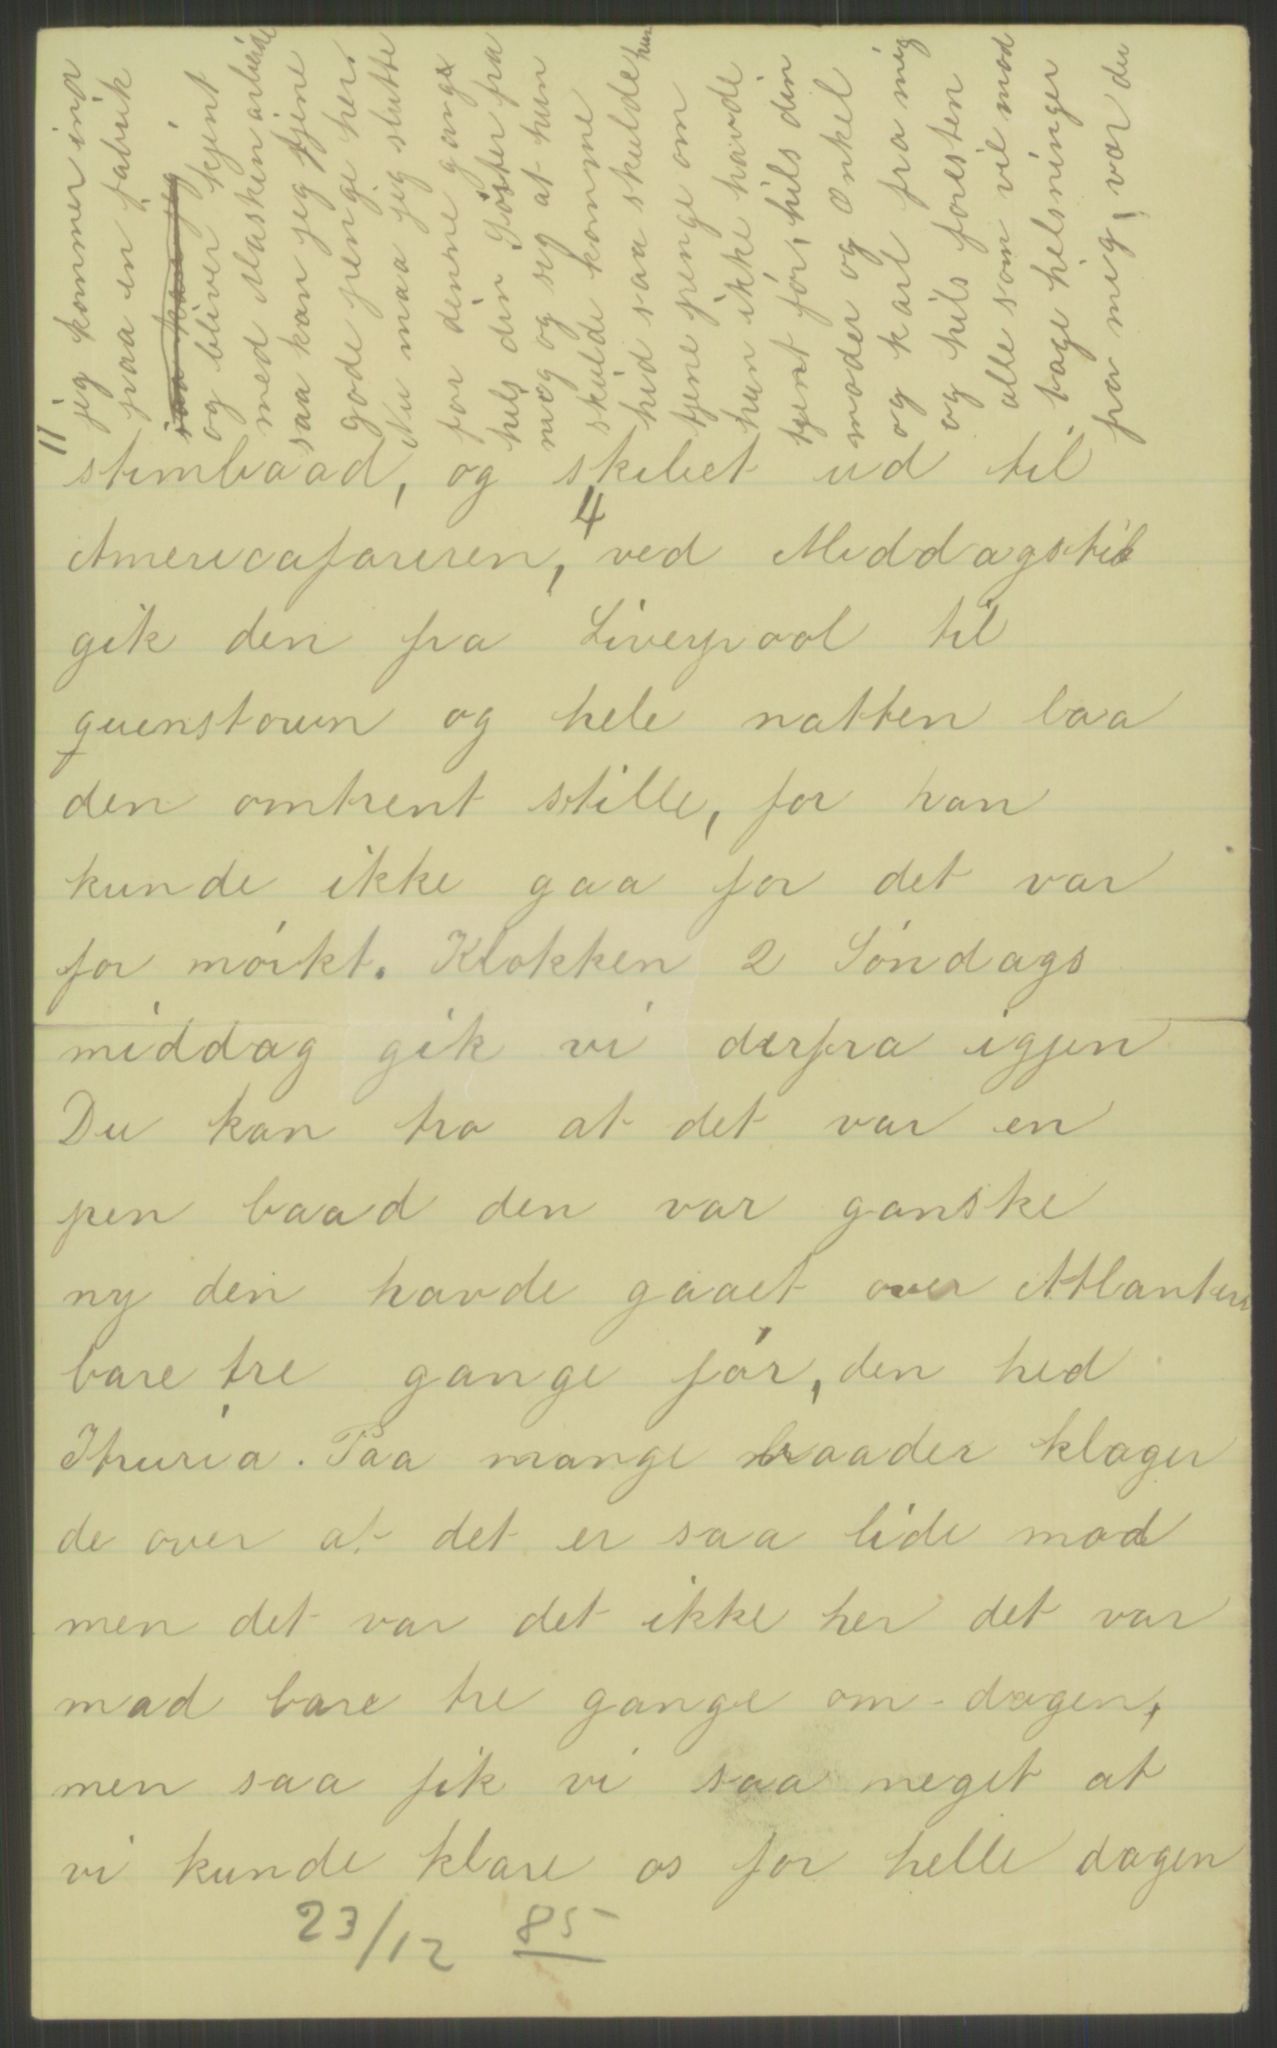 jeg kommer ind
paa en fabrik
saa kan jeg
og bliver kjent
med Maskin arbeide
saa kan jeg tjene
gode penge her.
Nu maa jeg slutte
for denne gang
hils din Söster fra
mig og seg at hun
skulde komme
hid saa skulde hun
tjene penge om
hun ikke havde
tjent för, hils din
moder og Onkel
og Karl fra mig
og hils foresten
alle som vil mod
tage helsninger
fra mig, vær du
11
stimbaad, og skibet ud til
4
Americafareren, ved Middagstid
gik den fra Liverpool til
quenstown og hele natten laa
den omtrent stille, for han
kunde ikke gaa for det var
for mörkt. Klokken 2 Söndags
middag gik vi derfra igjen
Du kan tro at det var en
pen baad den var ganske
ny den havde gaaet over Atlanteren
bare tre gange för, den hed
Itruria. Paa mange baader klager
de over at det er saa lide mad
men det var det ikke her det var
mad bare tre gange om dagen,
men saa fik vi saa meget at
vi kunde klare os for helle dagen
23/12 85